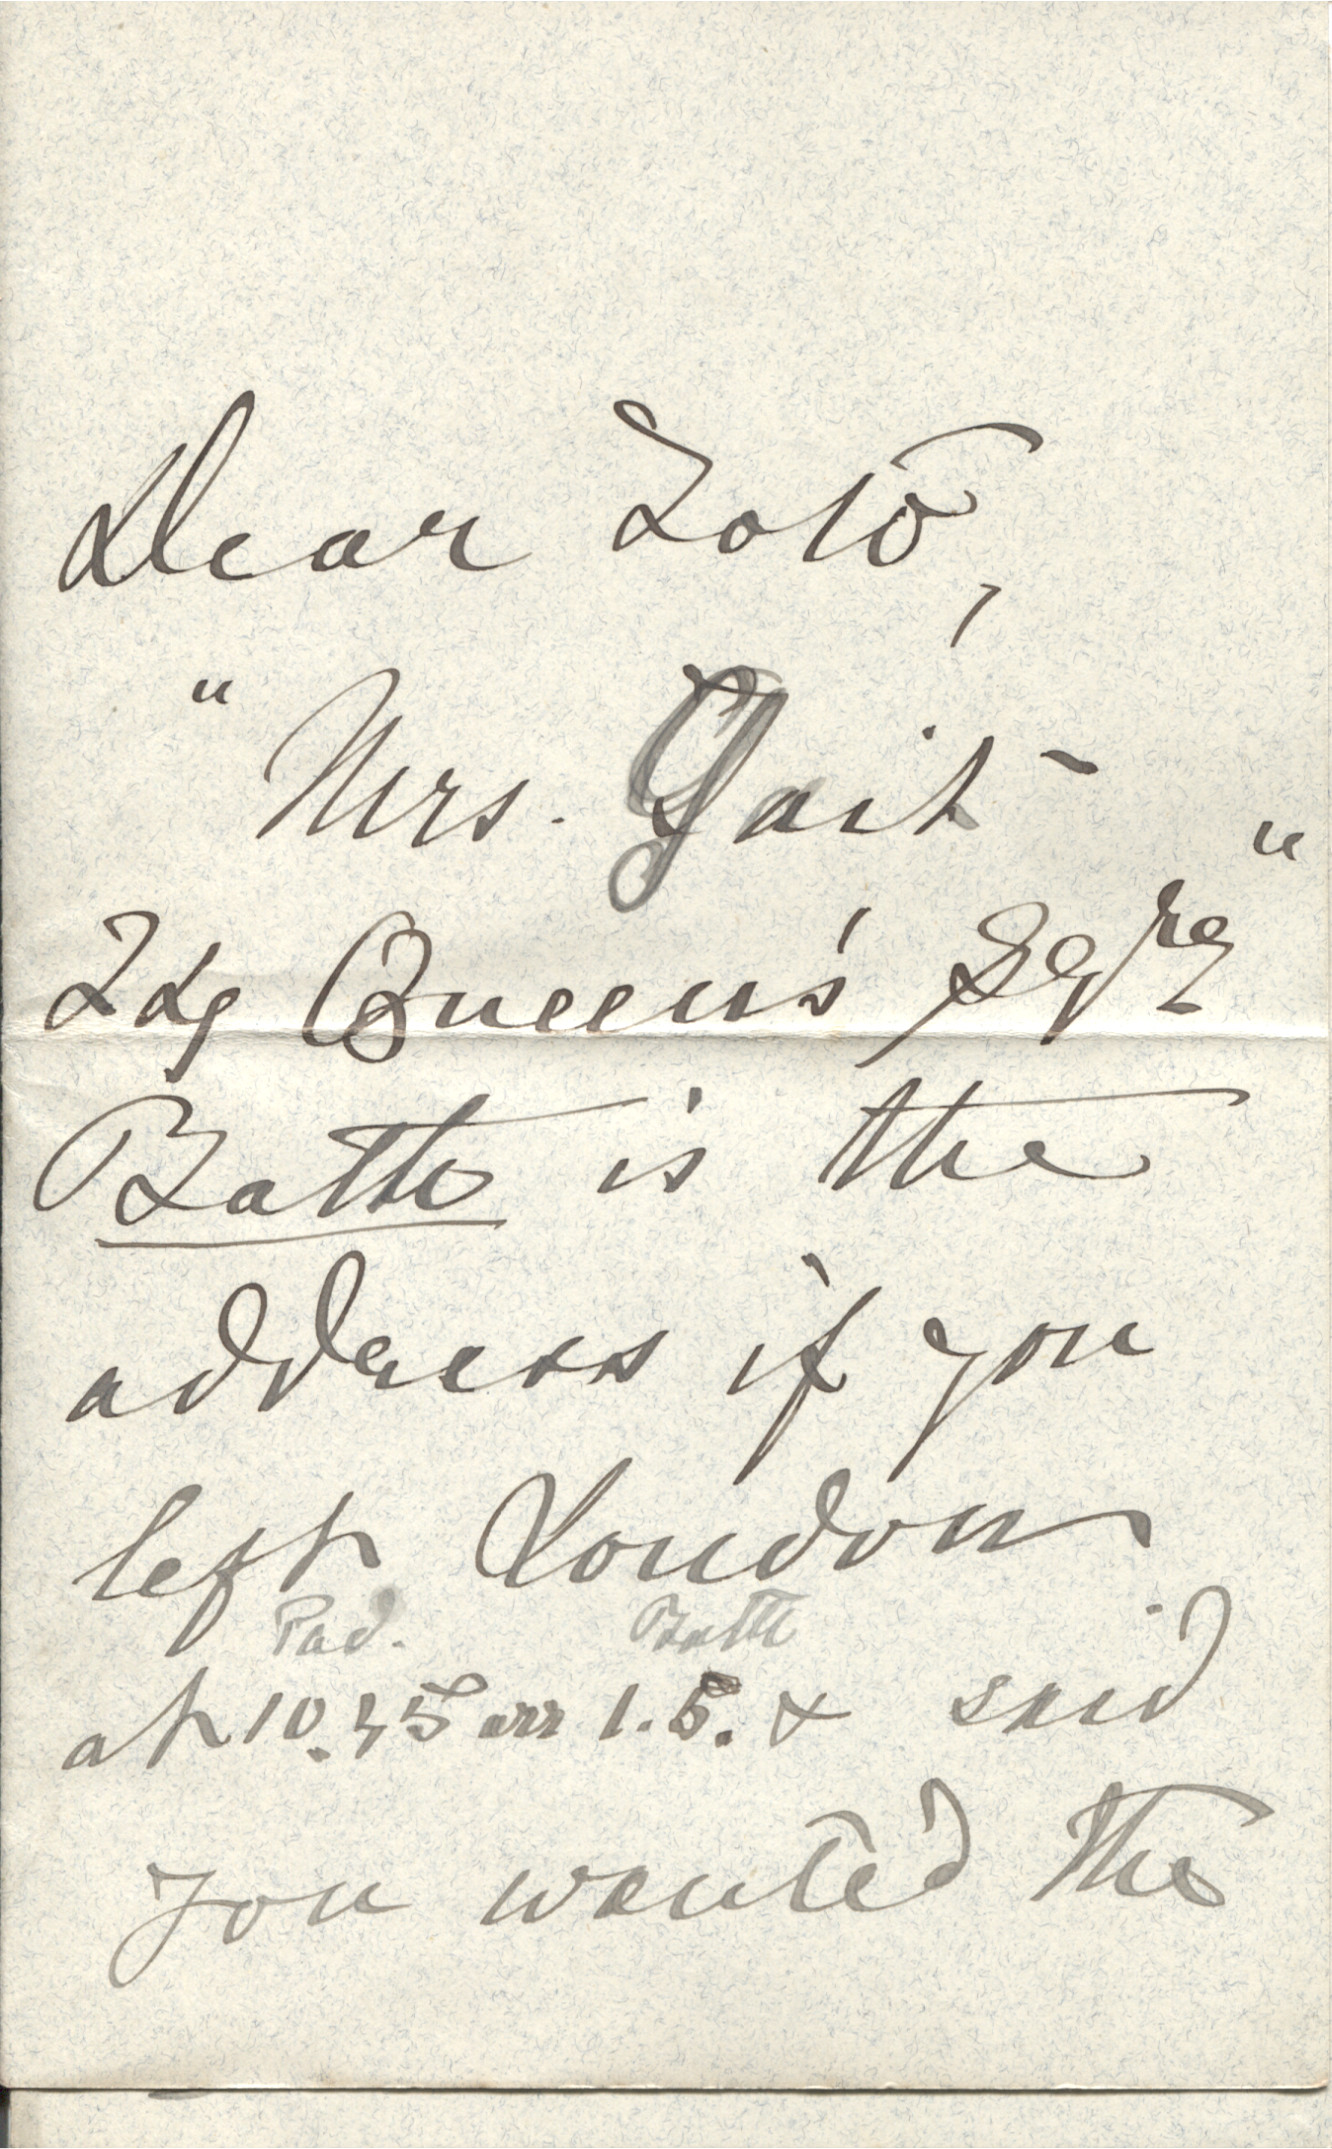 Dear Toto,
"Mrs. Gait -
24 Queen's Sqre"
Bath is the
address if you
left London
Pad. Bath
at 10.45 arr 1.5. & said
you wanted the